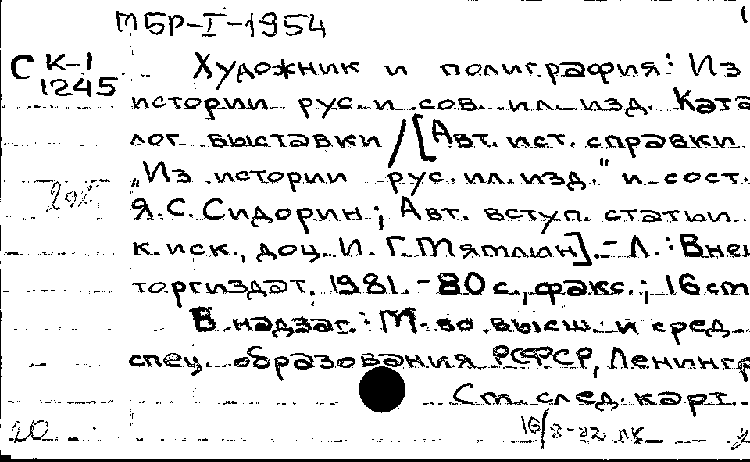 МБР-I-1954
С К-1
1245
Художник и полиграфия: Из
истории рус. и сов. ил. изд. Ката
лог выставки / [Авт. ист. справки
„Из истории рус. ил. изд." и сост.
Я.С. Сидорин; Авт. вступ. статьи
к. иск., доц. И. Г. Мямлин]. - Л.: Внеш
торгиздат, 1981. - 80 с., факс.; 16 см
В надзаг.: М-во высш. и сред.
спец. образования РСФСР, Ленингр
См. след. карт.
20